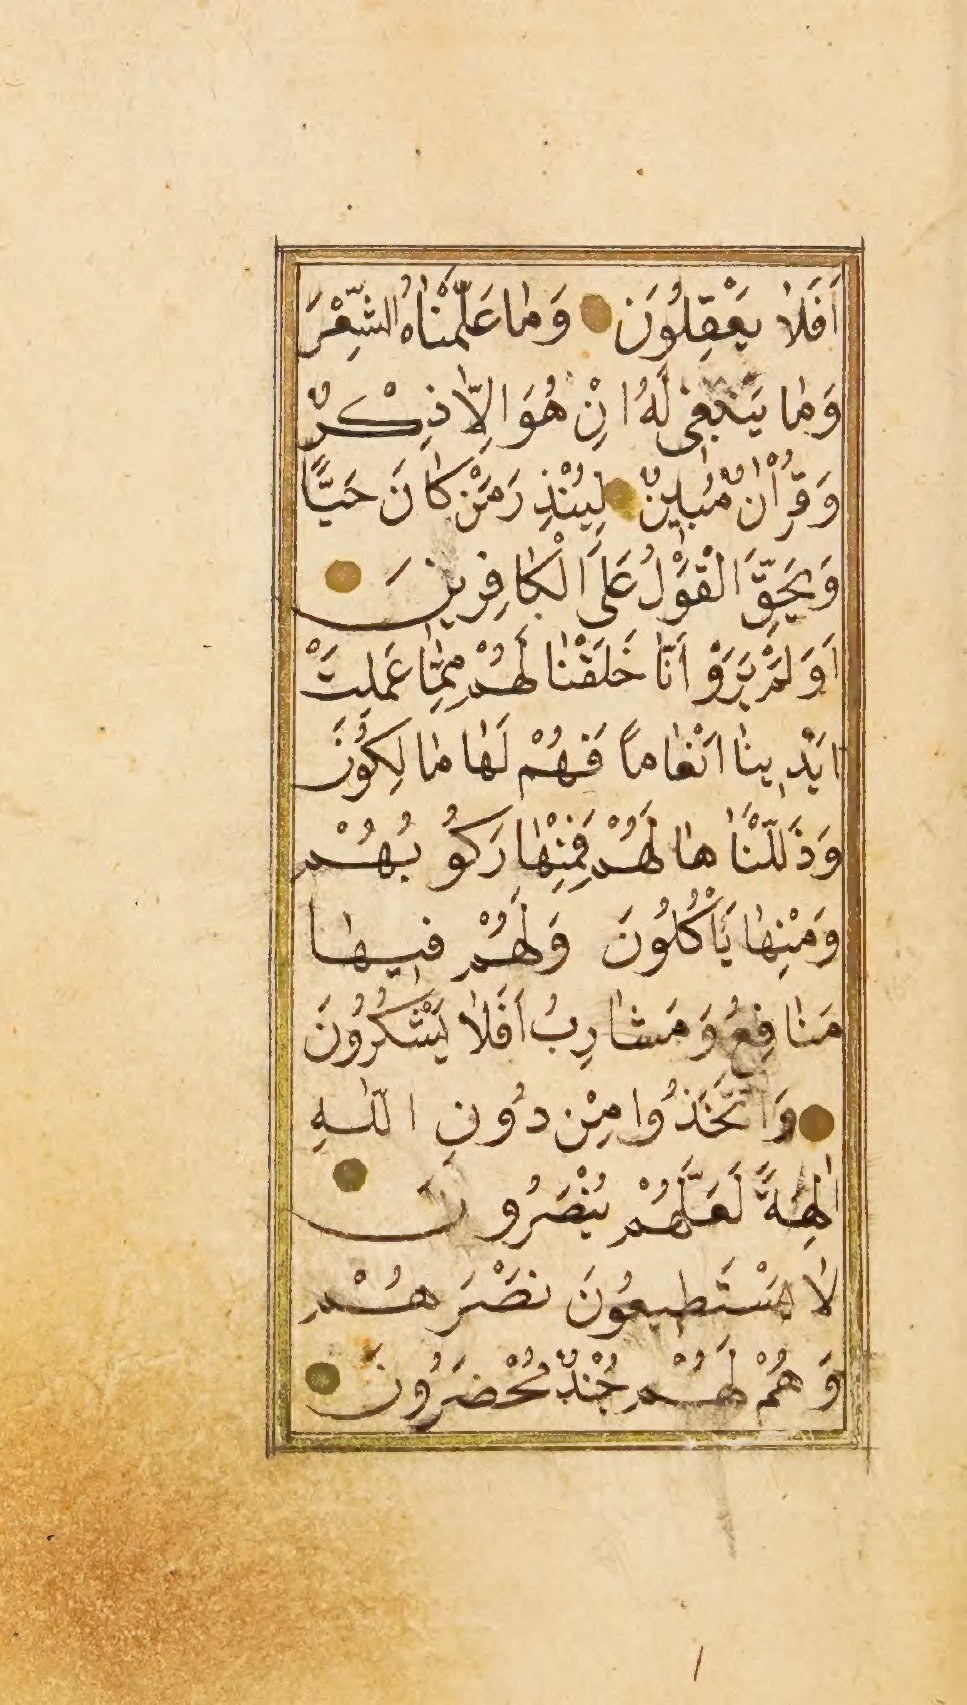 اَفَلاٰ يَعْقِلُوَنَ وَمٰا عَلَّمْنٰاهُ الشِّعْرَ
وَمٰا يَنْبَغٖى لَهُ اِنْ هُوَ اِلّاٰ ذِكْرٌ
وَقُرْاٰنٌ مُبٖينٌ لِيُنْذِرَ مَنْ كٰانَ حَيًّا
وَيَحِقَّ الْقَوْلُ عَلَى الْكٰافِرٖينَ
اَوَلَمْ يَرَوْ اَنّٰا خَلَقْنٰا لَهُمْ مِمّٰا عَمِلَتْ
اَيْدٖينٰا اَنْعٰاماً فَهُمْ لَهٰا مٰالِكُوُنَ
وَذَلَّلْنٰاهٰا لَهُمْ فَمِنْهٰا رَكُوبُهُمْ
وَمِنْهٰا يَأْكُلُونَ وَلَهُمْ فٖيهٰا
مَنٰافِعُ وَمَشٰارِبُ اَفَلاٰ يَشْكُرُونَ
وَاتَّخَذُوا مِنْ دُونِ اللّٰهِ
اٰلِهَةً لَعَلَّهُمْ يُنْصَرُونَ
لاٰ يَسْتَطٖيعُوَنَ نَصْرَهُمْ
وَهُمْ لَهُمْ جُنْدٌ مُحْضَرُونَ
١